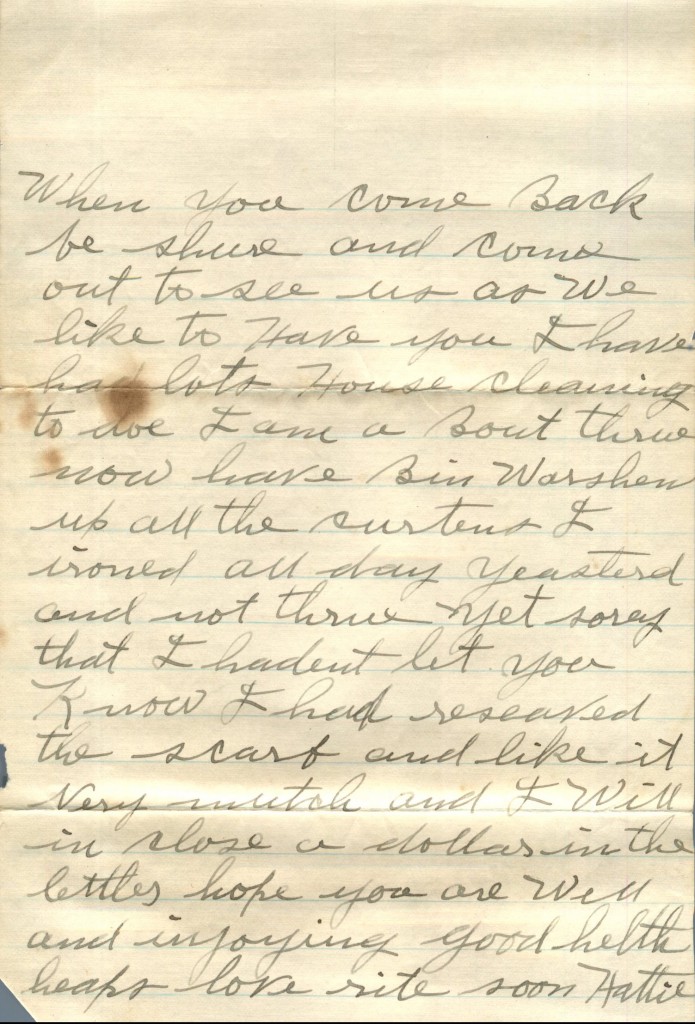 When you come Back
be shure and come
out to see us as We
like to Have you I have
had lots House cleaning
to doe I am a Bout thrue
now have Bin Warshen
up all the curtens I
ironed all day yeasterd
and not thrue yet sorey
that I hadent let you
Know I had reseaved
the scarf and like it
very mutch and I Will
in close a dollar in the
letter hope you are Well
and injoying good helth
heaps love rite soon Hattie